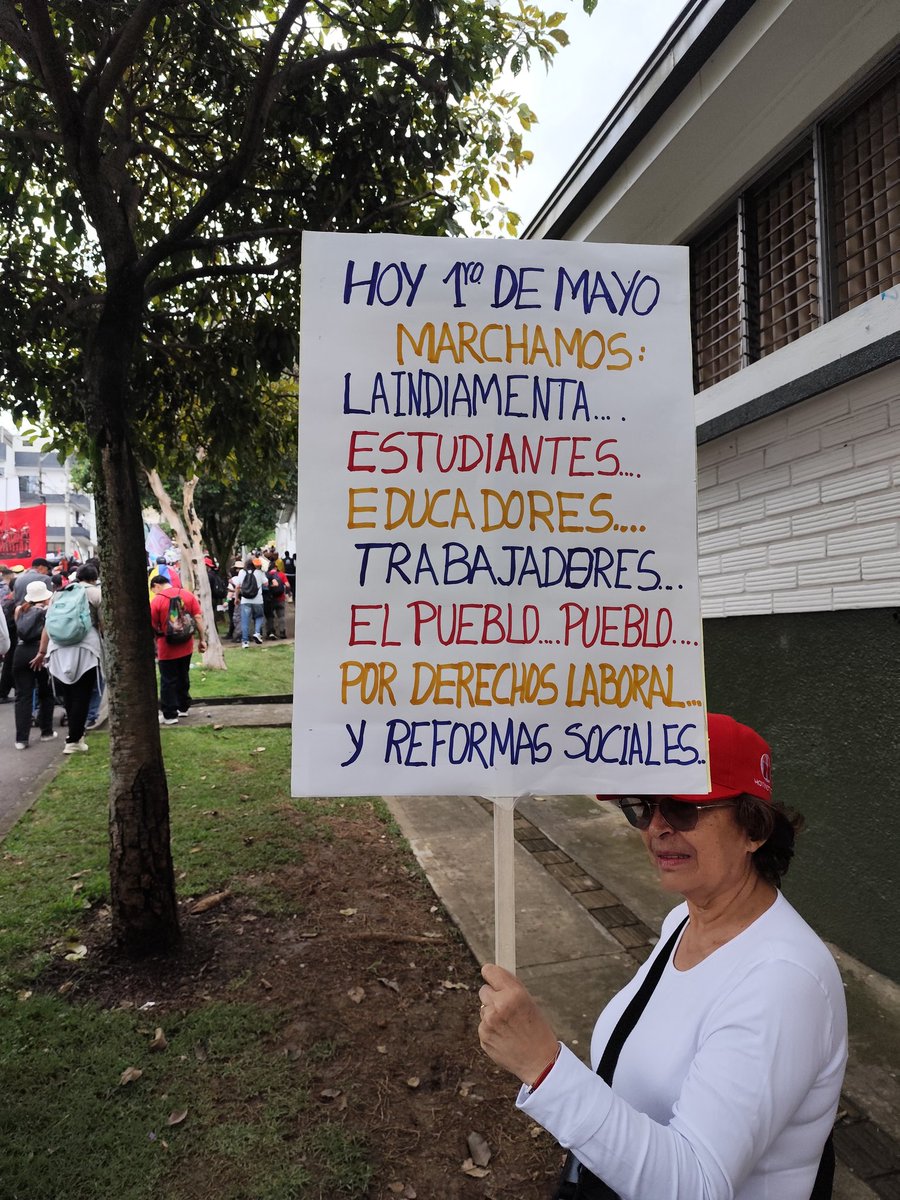 HOY 1ro DE MAYO
MARCHAMOS:
LAINDIAMENTA... .
ESTUDIANTES....
EDUCADORES....
TRABAJADORES...
EL PUEBLO....PUEBLO....
POR DERECHOS LABORAL...
Y REFORMAS SOCIALES..